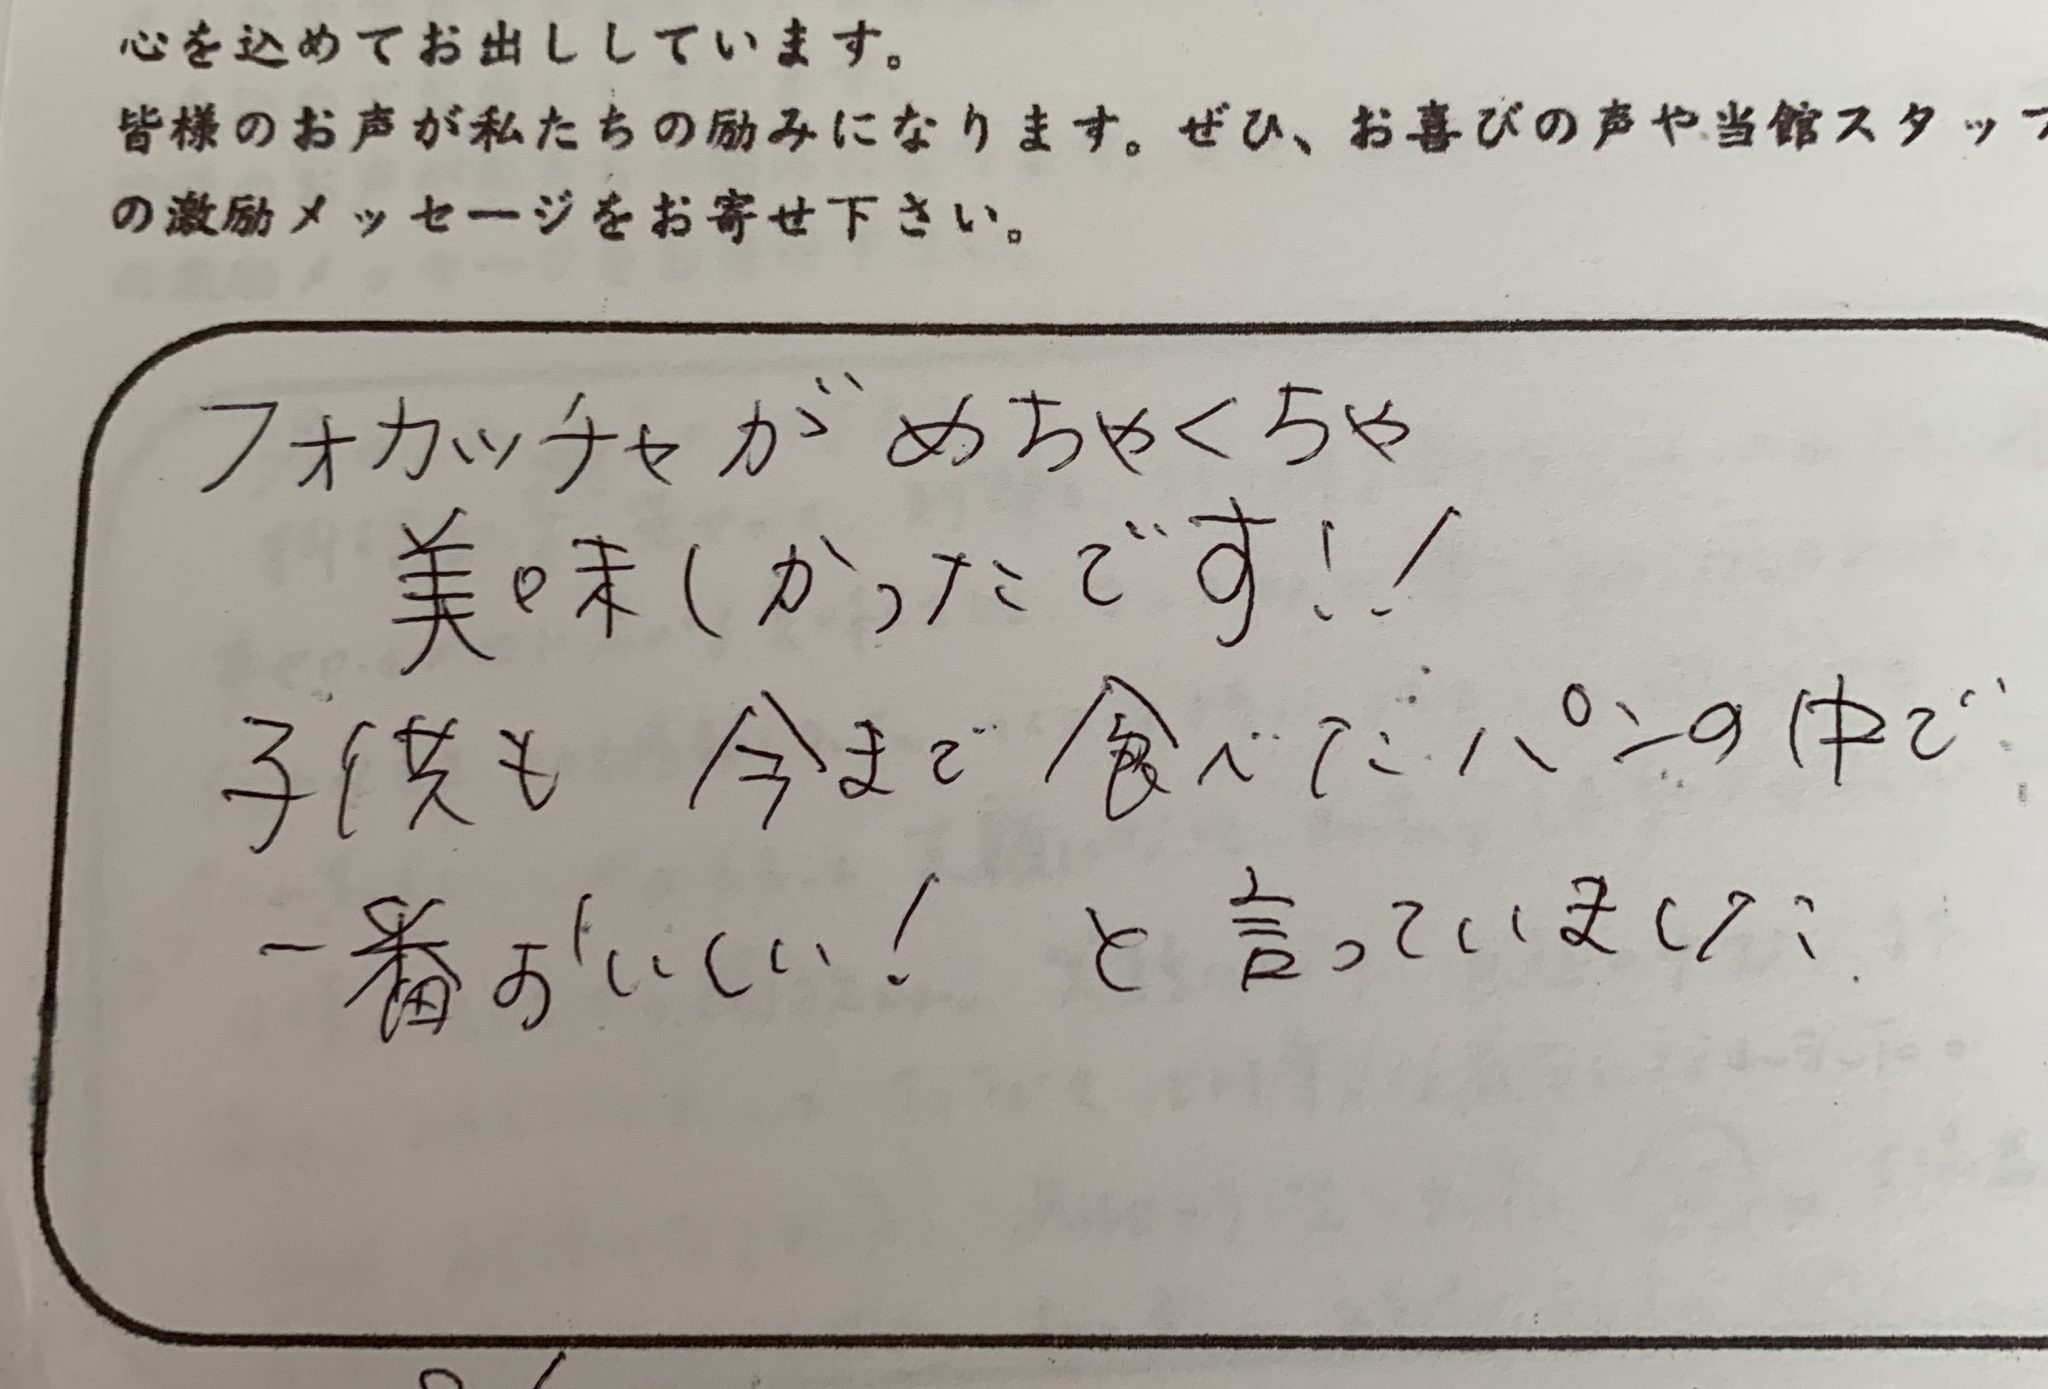 心を込めてお出ししています。
皆様のお声が私たちの励みになります。ぜひ、お喜びの声や当館スタッフ
の激励メッセージをお寄せ下さい。
フォカッチャがめちゃくちゃ
美味しかったです!!
子供も 今まで食べたパンの中で
一番おいしい! と言っていました